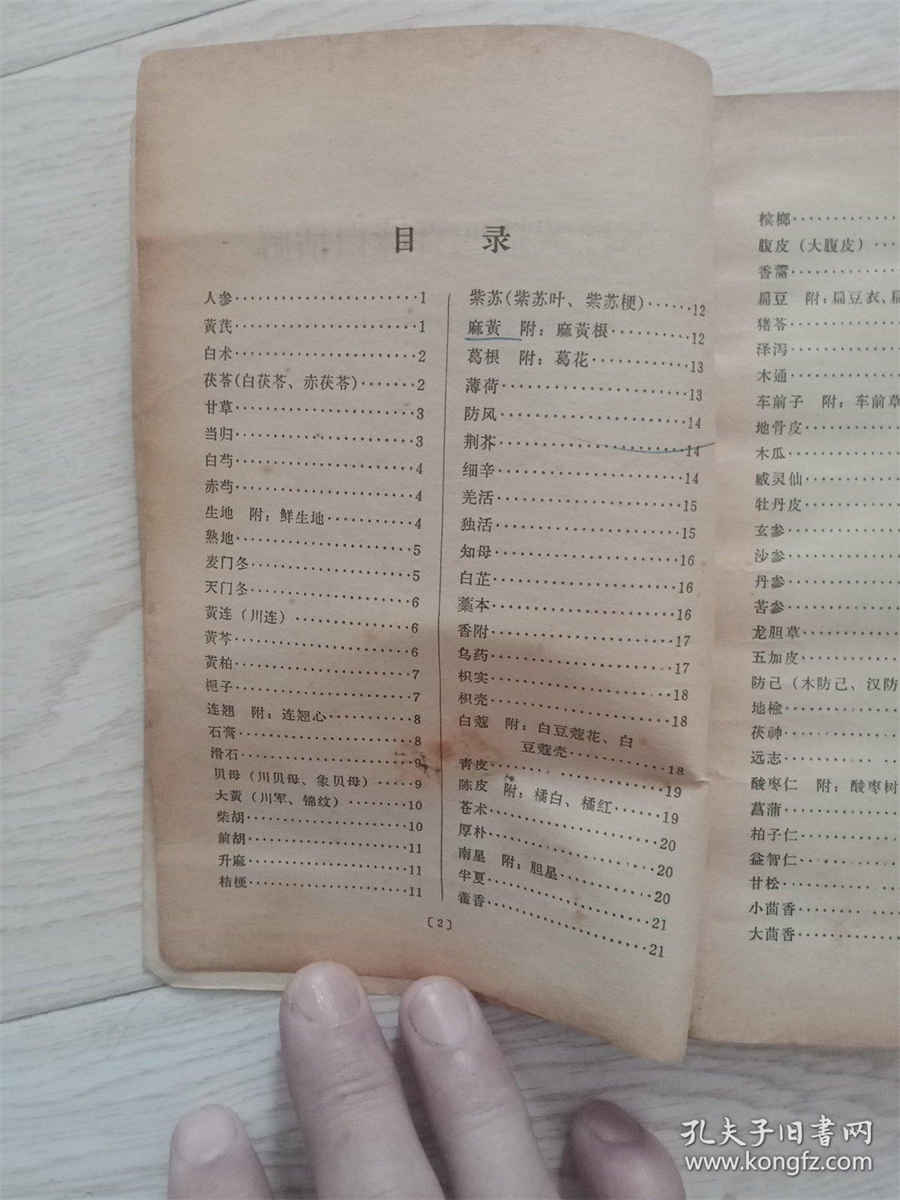 目 录
人参························1
黄芪························1
白术························2
茯苓(白茯苓、赤茯苓)·······2
甘草························3
当归························3
白芍························4
赤芍························4
生地 附：鲜生地···········4
熟地························5
麦门冬······················5
天门冬······················6
黄连（川连）················6
黄芩························6
黄柏························7
栀子························7
连翘 附：连翘心···········8
石膏························8
滑石························9
贝母（川贝母、象贝母）······9
大黄（川军、锦纹）·········10
柴胡························10
前胡························11
升麻························11
桔梗························11
紫苏(紫苏叶、紫苏梗)······12
麻黄 附：麻黄根···········12
葛根 附：葛花·············13
薄荷························13
防风························14
荆芥························14
细辛························14
羌活························15
独活························15
知母························16
白芷························16
藁本························16
香附························17
乌药························17
枳实························18
枳壳························18
白蔻 附：白豆蔻花、白
豆蔻壳················18
青皮························19
陈皮 附：橘白、橘红······19
苍术························20
厚朴························20
南星 附：胆星·············20
半夏························21
藿香························21
〔2〕
槟榔············
腹皮（大腹皮）···
香薷············
扁豆 附：扁豆衣、
猪苓············
泽泻············
木通············
车前子 附：车前草
地骨皮··········
木瓜············
威灵仙··········
牡丹皮··········
玄参············
沙参············
丹参············
苦参············
龙胆草··········
五加皮··········
防己（木防己、汉防
地榆············
茯神············
远志············
酸枣仁 附：酸枣树
菖蒲············
柏子仁··········
益智仁··········
甘松············
小茴香··········
大茴香··········
孔夫子旧书网
www.kongfz.com